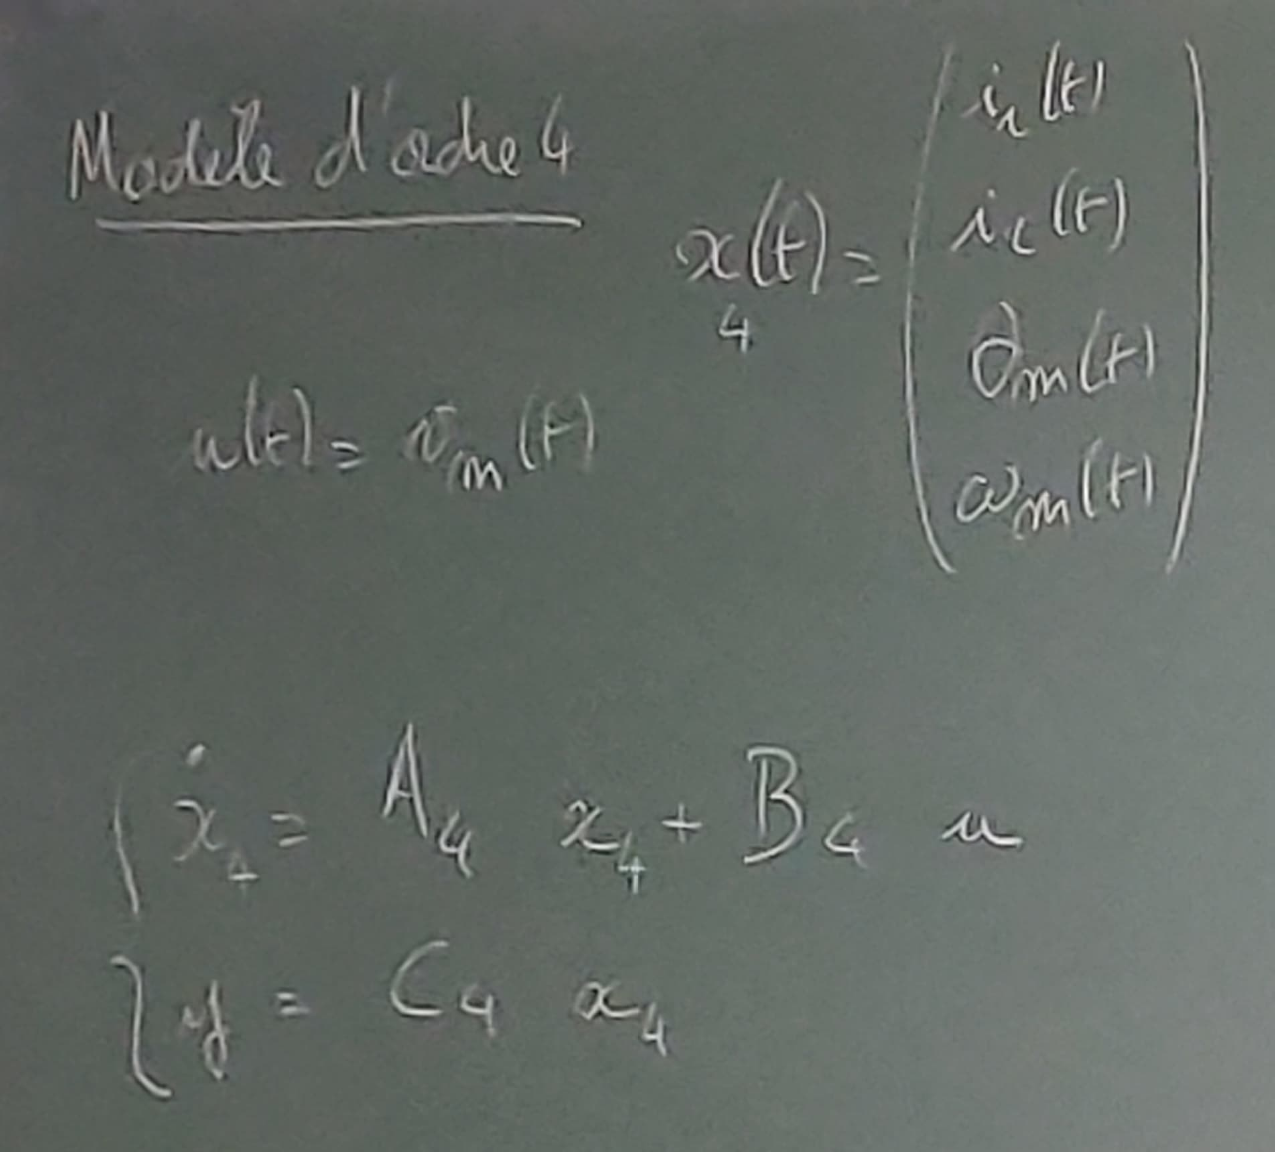 Modèle d'ordre 4
x₄(t) = ( i_r(t)
i_c(t)
θ_m(t)
ω_m(t) )
u(t) = v_m(t)
{ ẋ₄ = A₄ x₄ + B₄ u
y = C₄ x₄